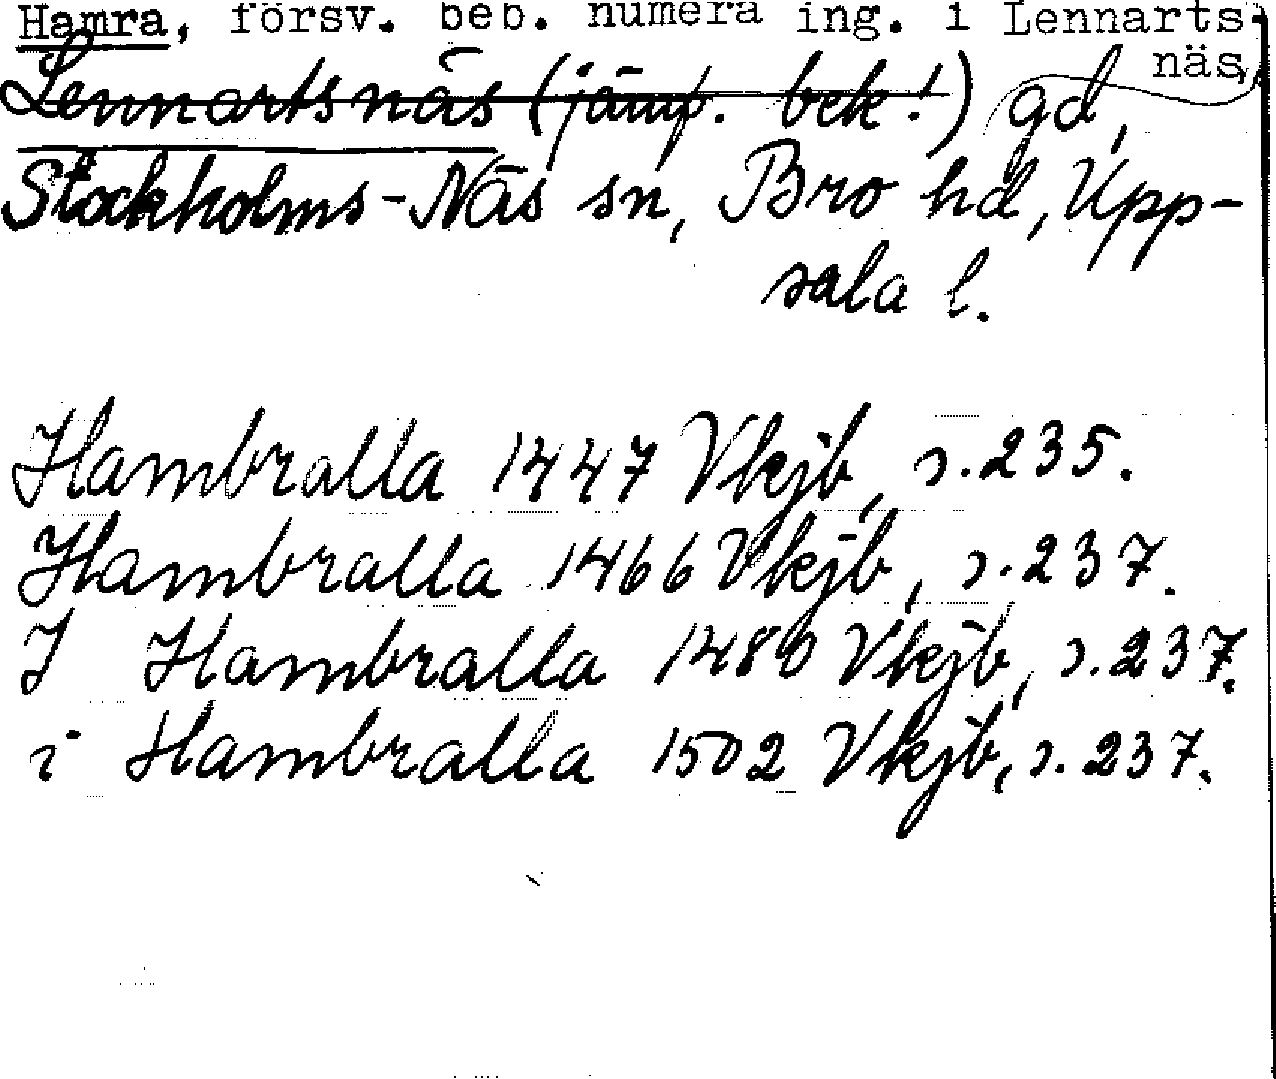 Hamra, försv. beb. numera ing. i Lennarts-
näs,
Lennartsnäs (jämf. bek!) gd,
Stockholms-Näs sn, Bro hd, Upp-
sala l.
Hambralla 1447 Vkjb, s. 235.
Hambralla 1466 Vkjb, s. 237.
I Hambralla 1480 Vkjb, s. 237.
i Hambralla 1502 Vkjb, s. 237.